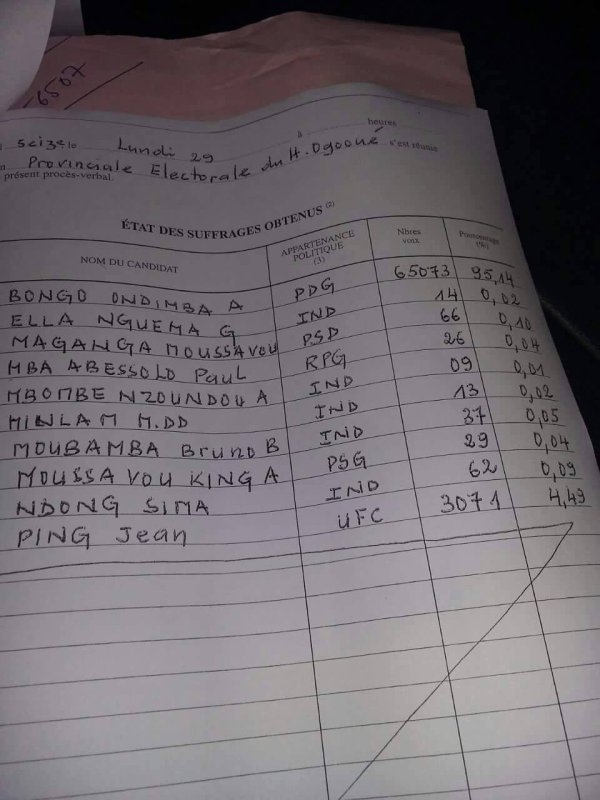 6507
à heures
seize le Lundi 29
Provinciale Electorale du H. Ogooué s'est réunie
présent procès-verbal.
ÉTAT DES SUFFRAGES OBTENUS (2)
NOM DU CANDIDAT APPARTENANCE POLITIQUE (3) Nbres voix Pourcentage (%)
BONGO ONDIMBA A PDG 65073 95,14
ELLA NGUEMA G IND 14 0,02
MAGANGA MOUSSAVOU PSD 66 0,10
MBA ABESSOLO Paul RPG 26 0,04
MBOMBE NZOUNDOU A IND 09 0,01
MINLAM M.DD IND 13 0,02
MOUBAMBA Bruno B IND 37 0,05
MOUSSAVOU KING A PSG 29 0,04
NDONG SIMA IND 62 0,09
PING Jean UFC 3071 4,49